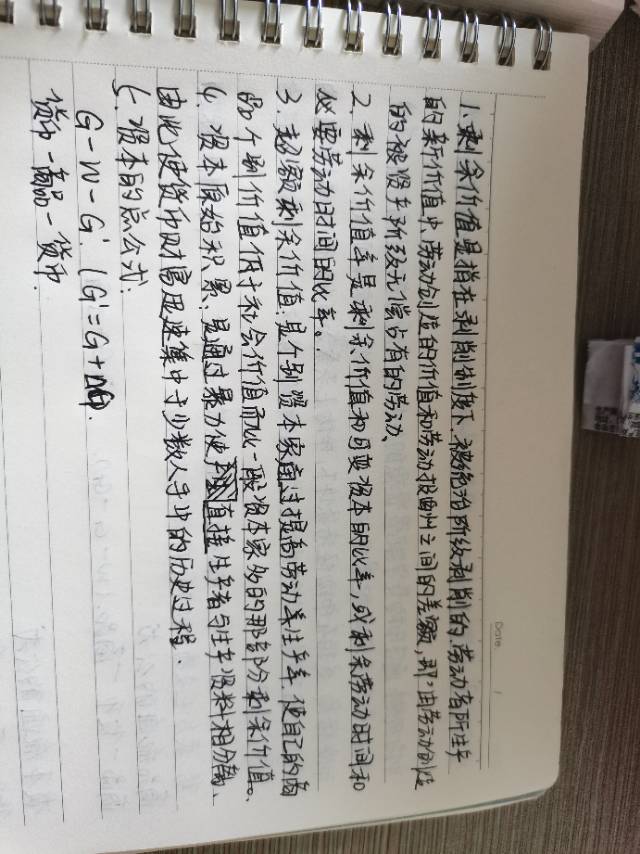 Date. /
1. 剩余价值是指在剥削制度下,被统治阶级剥削的,劳动者所生产
的新价值中,劳动创造的价值和劳动报酬之间的差额,即:由劳动创造
的被资产阶级无偿占有的劳动、
2. 剩余价值率是剩余价值和可变资本的比率,或剩余劳动时间和
必要劳动时间的比率。
3. 超额剩余价值:是个别资本家通过提高劳动生产率,使自己的商
品个别价值低于社会价值而比一般资本家多的那部分剩余价值。
4. 资本原始积累:是通过暴力使直接生产者与生产资料相分离、
由此使货币财富迅速集中于少数人手中的历史过程.
5. 资本的总公式:
G - W - G'. (G'=G+△G).
货币-商品-货币.